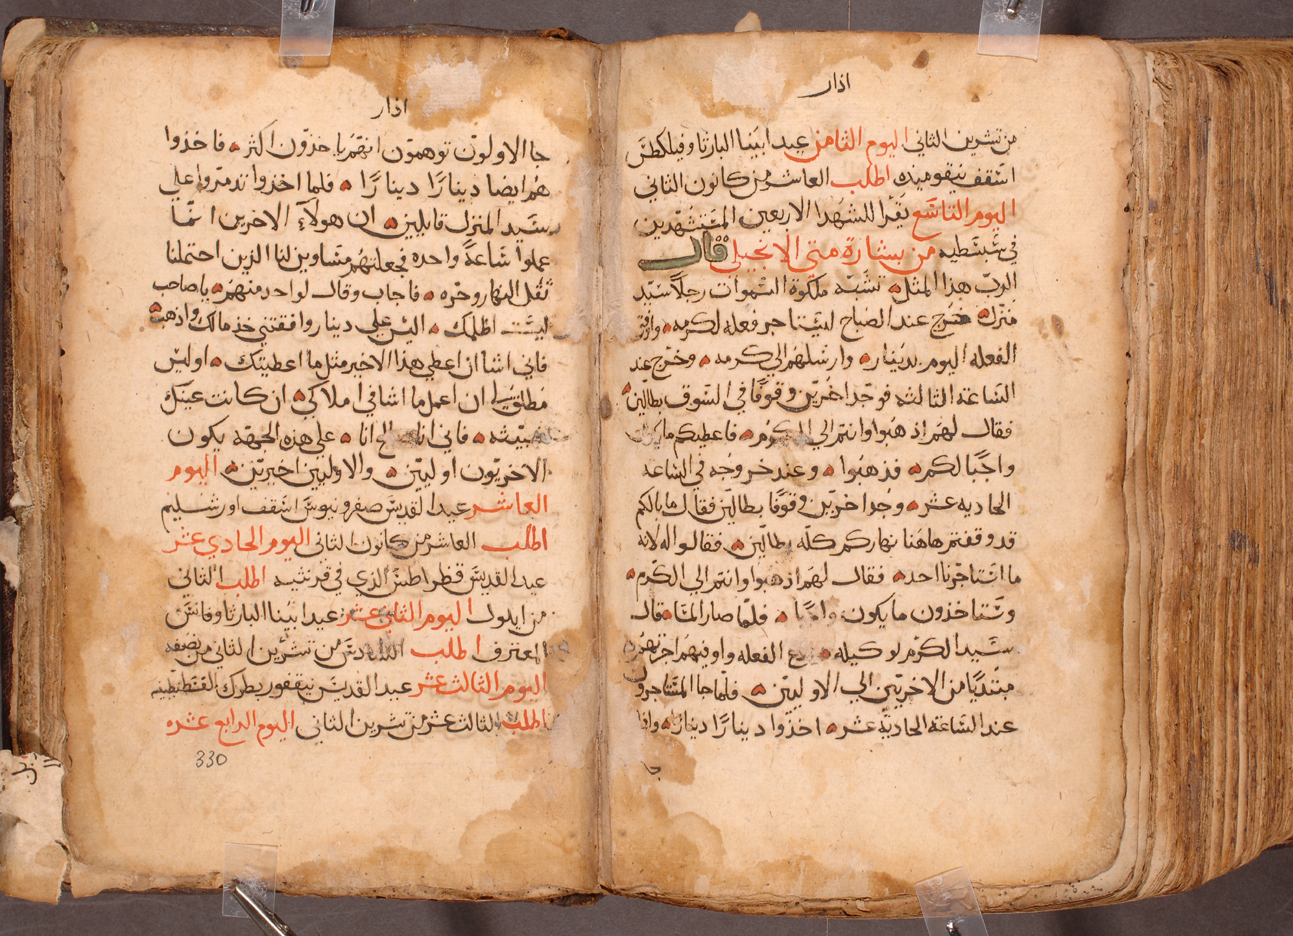 اذار
من تشرين الثاني اليوم الثامن عيد ابينا البار ثاوفيلكطس
اسقف نيقوميده اطلب العاشر من كانون الثاني
اليوم التاسع يقرا للشهدا الاربعين المستشهدين
في سبسطيه من بشارة متى الانجيلي قال
الرب هذا المثل تشبه ملكوة السموات رجلا سيد
منزل خرج عند الصباح ليستاجر فعله لكرمه وافق
الفعله اليوم بدينار وارسلهم الى كرمه وخرج عند
الساعة الثالثه فوجد اخرين وقوفا في السوق بطالين
فقال لهم اذهبوا وانتم الى الكرم فاعطيكم ما يكون
واجبا لكم فذهبوا وعند خروجه في الساعه
الحاديه عشر وجد اخرين وقوفا بطالين فقال ما بالكم
قد وقفتم هاهنا نهاركم كله بطالين فقالوا له لانه
ما استاجرنا احد فقال لهم اذهبوا وانتم الى الكرم
وستاخذون ما يكون واجبا فلما صار المسا قال
سيد الكرم لوكيله ادع الفعله واوفيهم اجرتهم
مبتديا من الاخريين الى الاوليين فلما جا المستاجرون
عند الساعة الحادية عشر اخذوا دينارا دينارا واذا
جا
اذار
جا الاولون توهمون انهم ياخذون اكثر فاخذوا
هم ايضا دينارا دينارا فلما اخذوا تدمروا على
سيد المنزل قايلين ان هولآء الاخرين انما
عملوا ساعة واحده فجعلتهم مساوين لنا الذين احتملنا
ثقل النهار وحره فاجاب وقال لواحد منهم يا صاحب
ليست اظلمك اليس على دينار وافقتني خذ مالك واذهب
فاني اشا ان اعطي هذا الاخير مثل ما اعطيتك اوليس
مطلق لي ان اعمل ما اشا في املاكي ان كانت عينك
خبيثه فاني انا صالح انا على هذه الجهة يكون
الاخريون اوليين والاولين اخيرين اليوم
العاشر عيد القديس صفرونيوس اسقف اورشليم
اطلب العاشر من كانون الثاني اليوم الحادي عشر
عيد القديس قطراطس الذي في قرنثيه اطلب الثاني
من ايلول اليوم الثاني عشر عيد ابينا البار ثاوفانس
المعترف اطلب السادس من تشرين الثاني من نصفه
اليوم الثالث عشر عيد القديس نيقفور بطرك القسطنطينيه
اطلب الثالث عشر من تشرين الثاني اليوم الرابع عشره
330